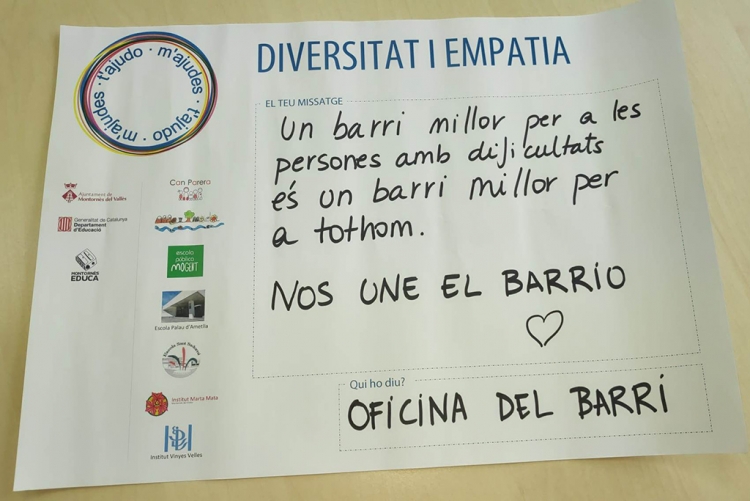 m'ajudes · t'ajudo · m'ajudes · t'ajudo ·
DIVERSITAT I EMPATIA
EL TEU MISSATGE
Un barri millor per a les
persones amb dificultats
és un barri millor per
a tothom.
NOS UNE EL BARRIO
Qui ho diu?
OFICINA DEL BARRI
Ajuntament de
Montornès del Vallès
Generalitat de Catalunya
Departament
d'Educació
MONTORNÈS
EDUCA
Can Parera
escola
pública
MOGENT
Escola Palau d'Ametlla
Institut Marta Mata
Institut Vinyes Velles